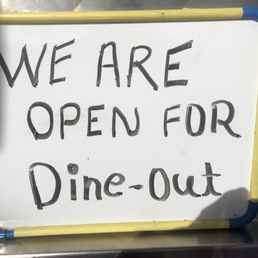 WE ARE
OPEN FOR
Dine-out